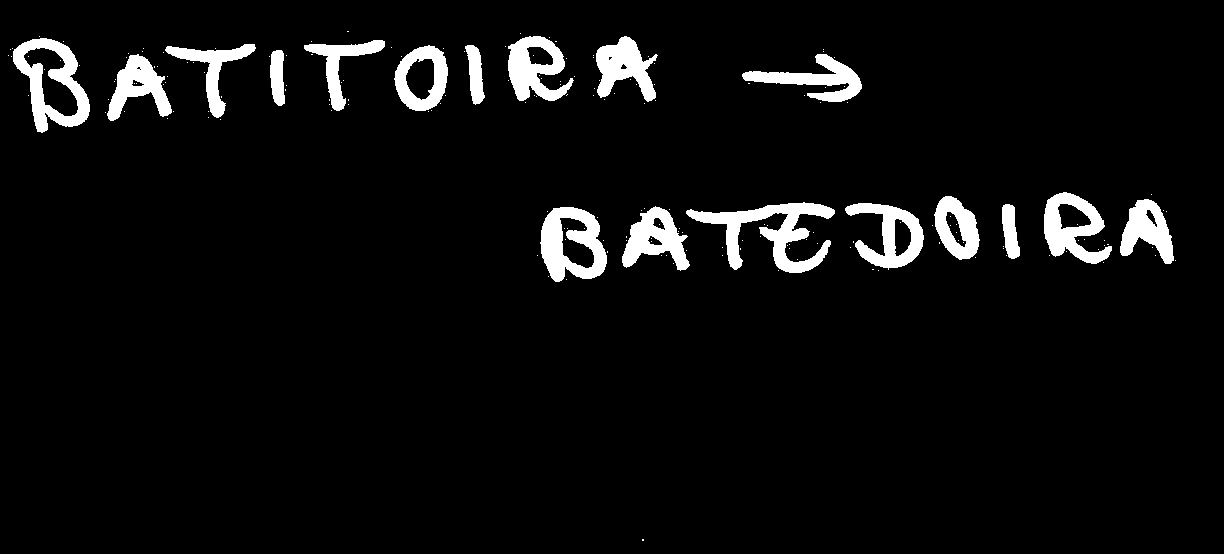 BATITOIRA →
BATEDOIRA